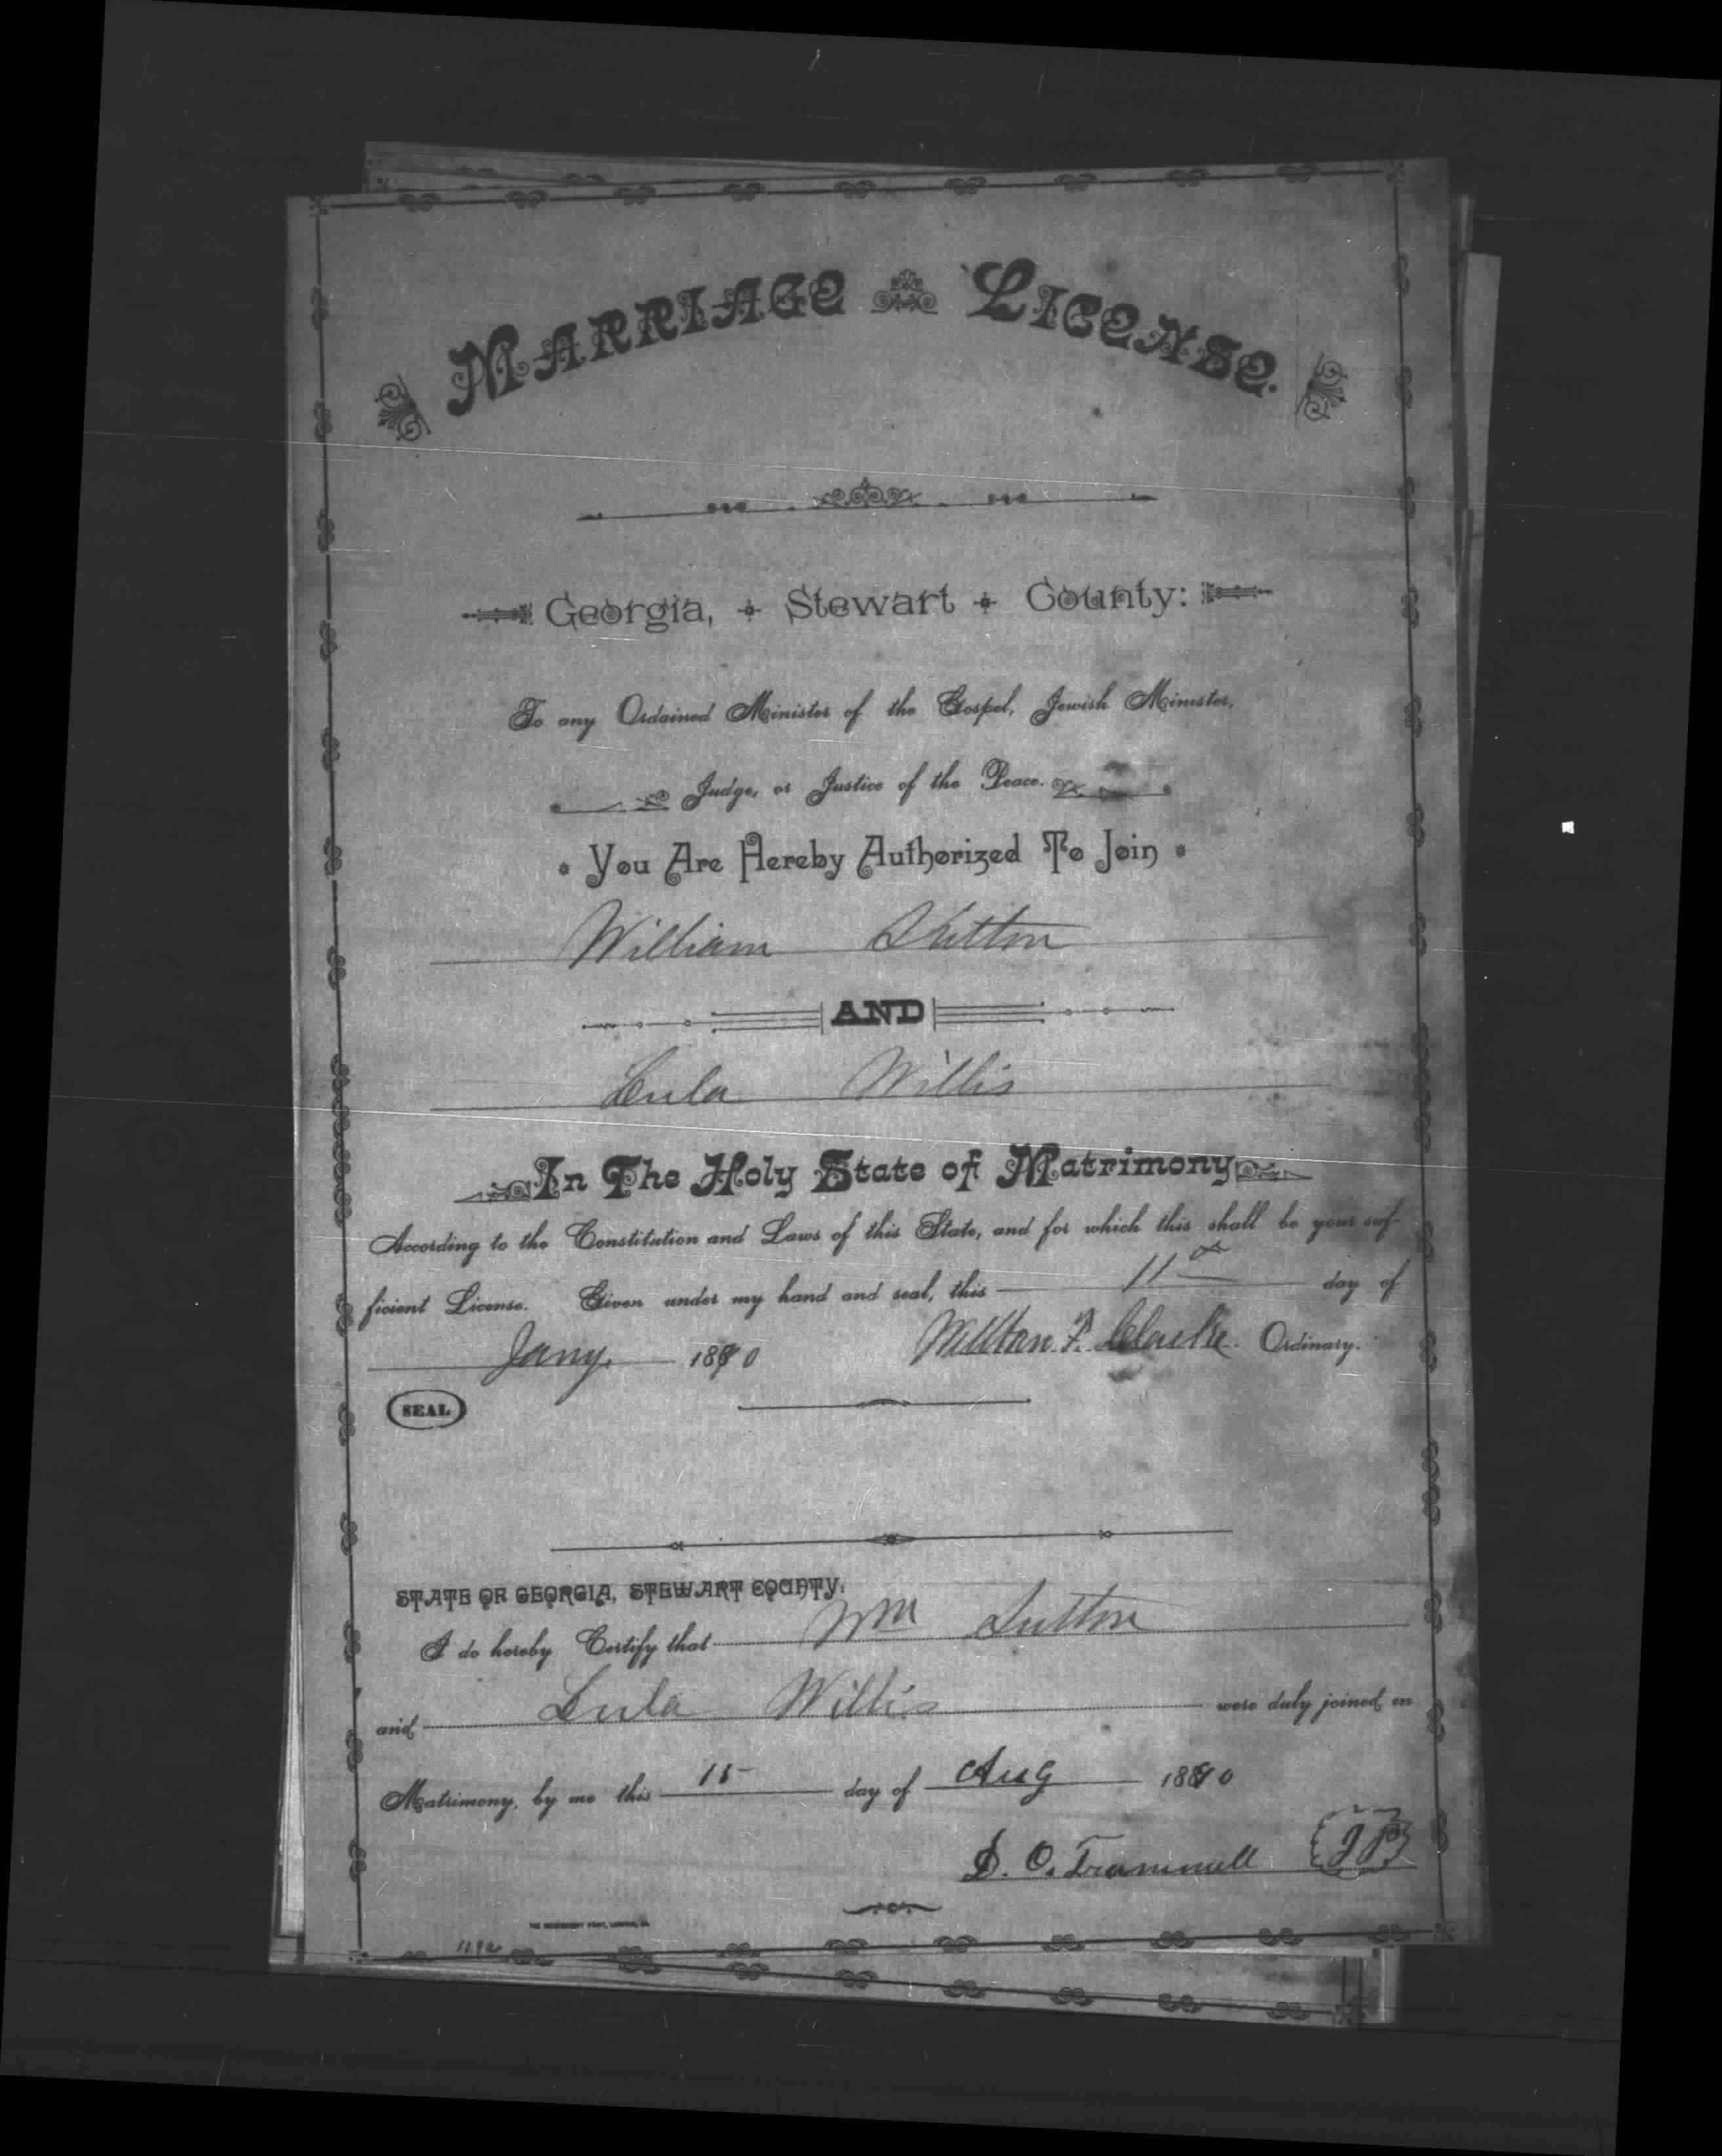 MARRIAGE LICENSE.
Georgia, Stewart County:
To any Ordained Minister of the Gospel, Jewish Minister,
Judge, or Justice of the Peace.
You Are Hereby Authorized To Join
William Sutton
AND
Lula Willis
In The Holy State of Matrimony
According to the Constitution and Laws of this State, and for which this shall be your suf-
ficient License. Given under my hand and seal, this 11th day of
Jany. 1890 F. Clarke. Ordinary.
SEAL
STATE OF GEORGIA, STEWART COUNTY:
I do hereby Certify that Wm Sutton
and Lula Willis were duly joined in
Matrimony, by me this 15 day of Aug 1890
D. O. Trammell JP